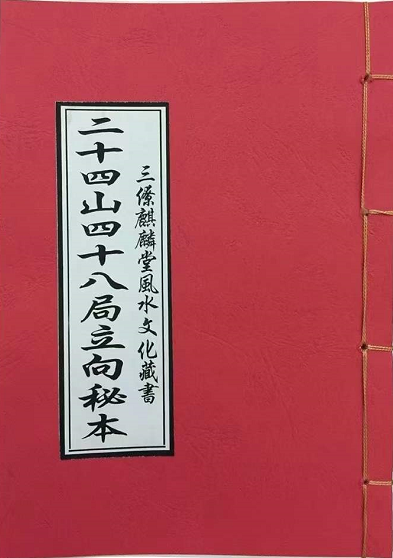 三僚麒麟堂風水文化藏書
二十四山四十八局立向秘本